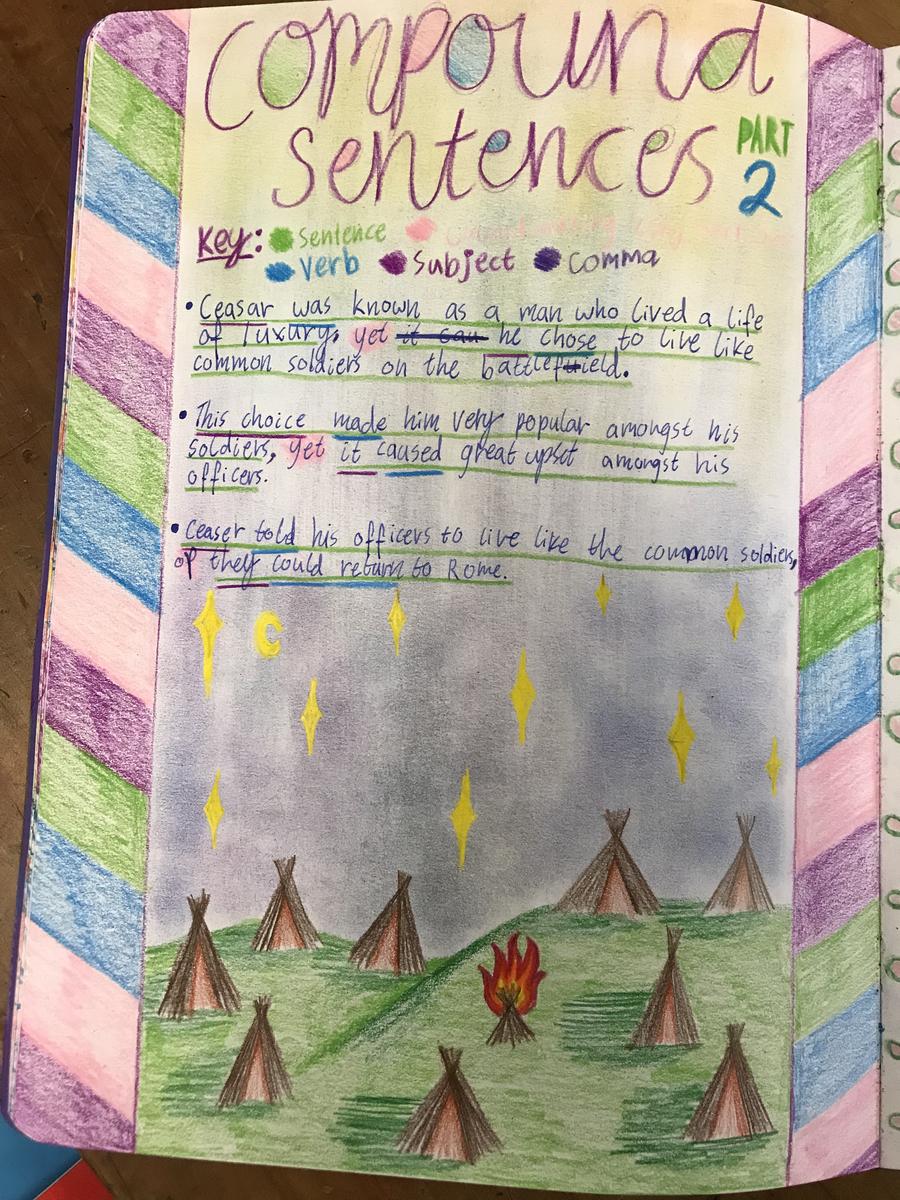 Compound
Sentences
PART
2
Key: Sentence
Verb Subject Comma
• Ceasar was known as a man who lived a life
of luxury, yet it can he chose to live like
common soldiers on the battlefield.
• This choice made him very popular amongst his
soldiers, yet it caused great upset amongst his
officers.
• Ceaser told his officers to live like the common soldiers,
or they could return to Rome.